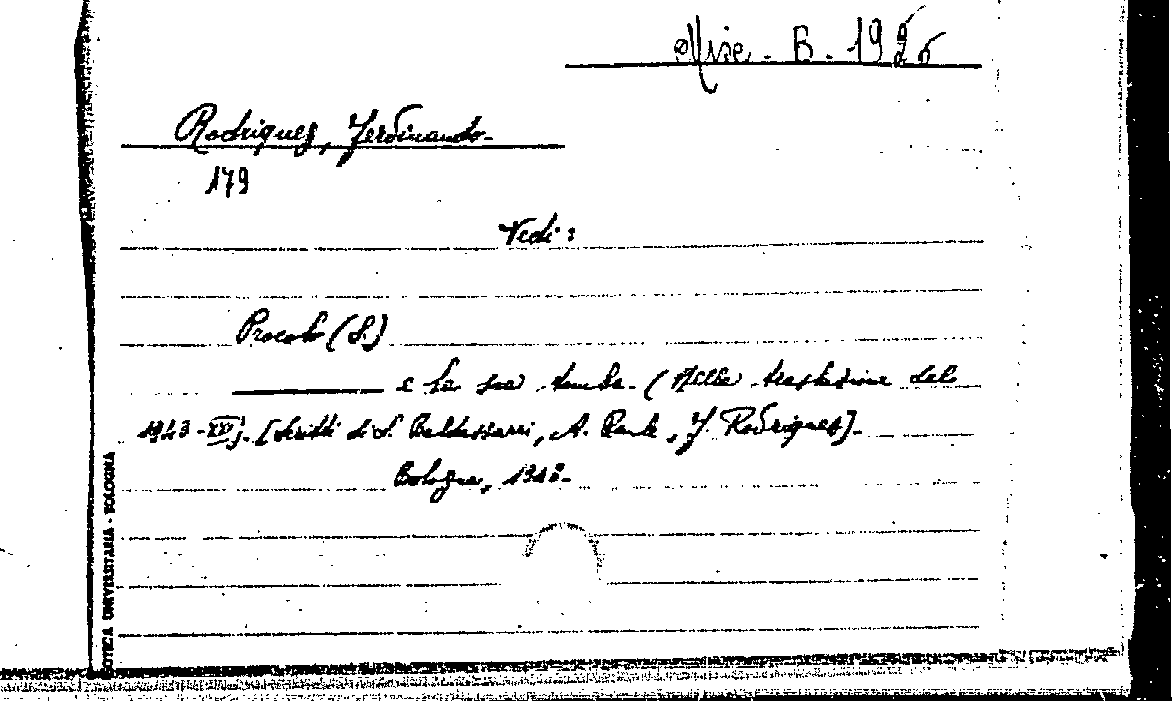 Misc. B. 1926
Rodriguez, Ferdinando.
179
Vedi:
Procolo (S.)
e la sua tomba. (Nella traslazione del
1943-XXI). [Scritti di S. Baldassarri, A. Raule, F. Rodriguez].
Bologna, 1943.
OTECA UNIVERSITARIA - BOLOGNA